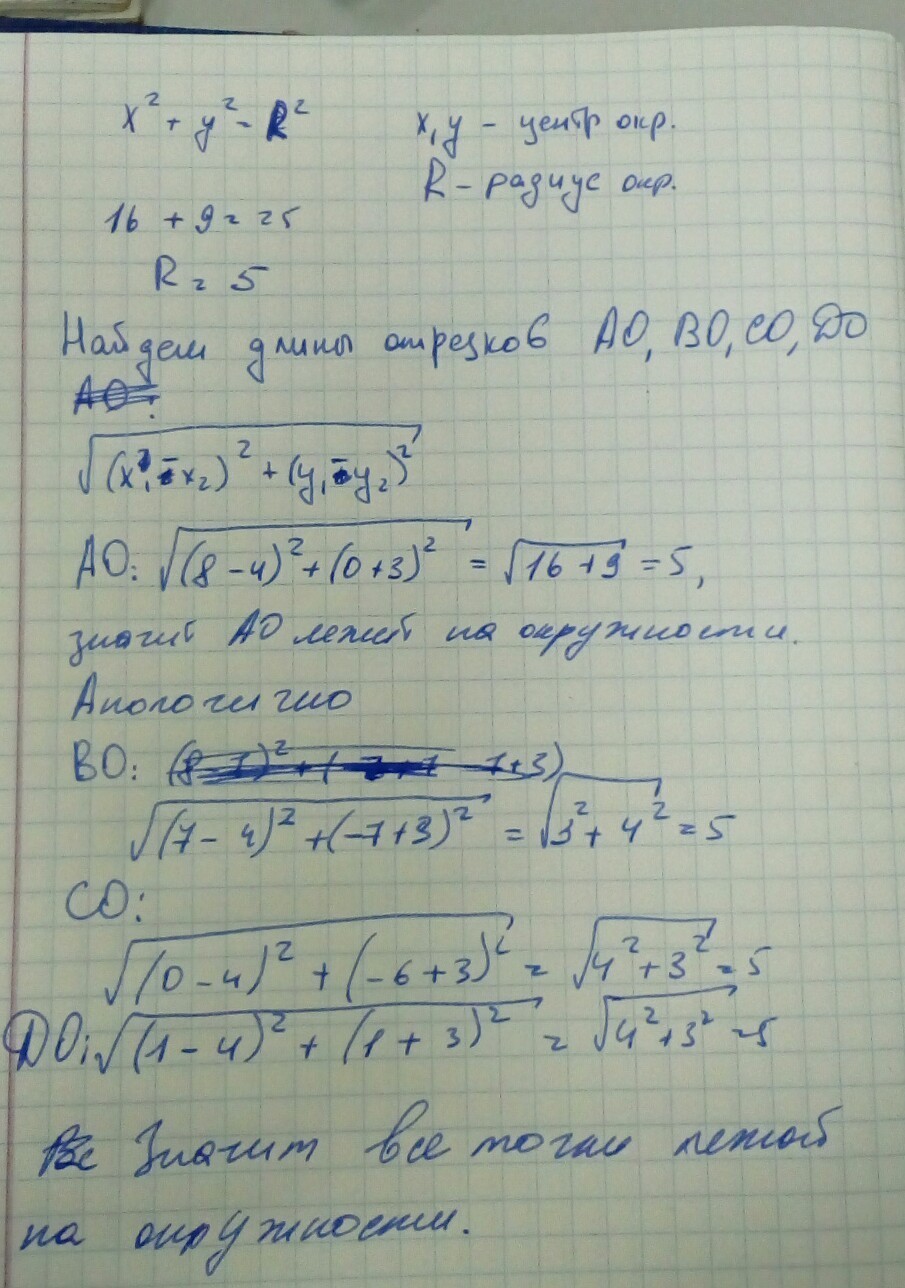 x² + y² = R² x, y - центр окр.
R - радиус окр.
16 + 9 = 25
R = 5
Найдем длины отрезков AO, BO, CO, DO
AO:
√((x₁ - x₂)² + (y₁ - y₂)²)
AO: √((8 - 4)² + (0 + 3)²) = √(16 + 9) = 5,
значит AO лежит на окружности.
Аналогично
BO:
√((7 - 4)² + (-7 + 3)²) = √(3² + 4²) = 5
CO:
√((0 - 4)² + (-6 + 3)²) = √(4² + 3²) = 5
DO: √((1 - 4)² + (1 + 3)²) = √(4² + 3²) = 5
Все Значит все точки лежат
на окружности.